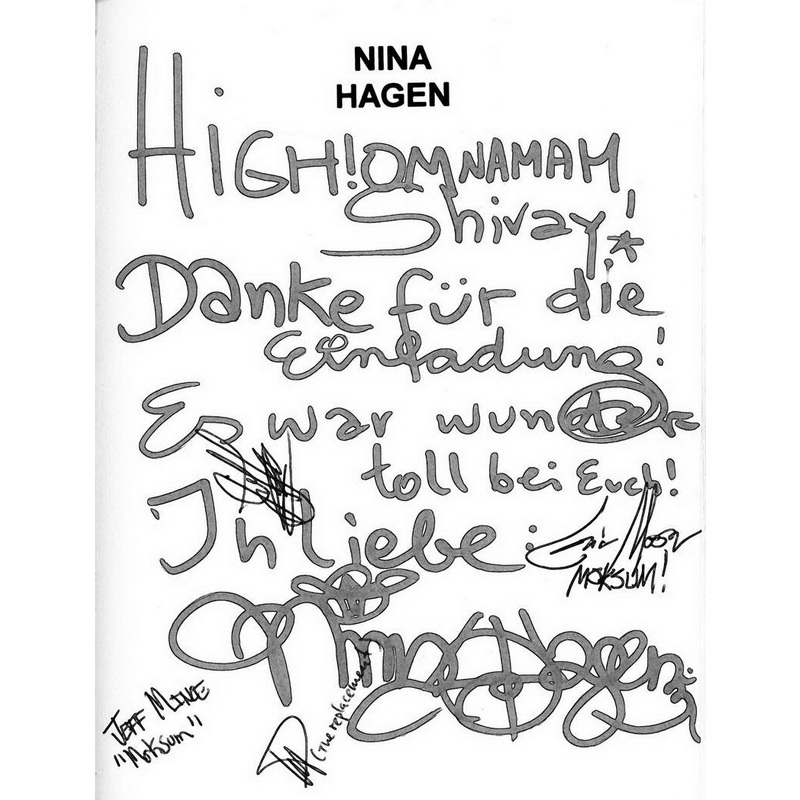 NINA
HAGEN
HIGH! OM NAMAH
Shivay!
Danke für die
Einladung!
Es war wunder
toll bei Euch!
In Liebe:
Nina Hagen
Eric Moore
MOKSUM!
JEFF
"Moksum"
(The replacement)